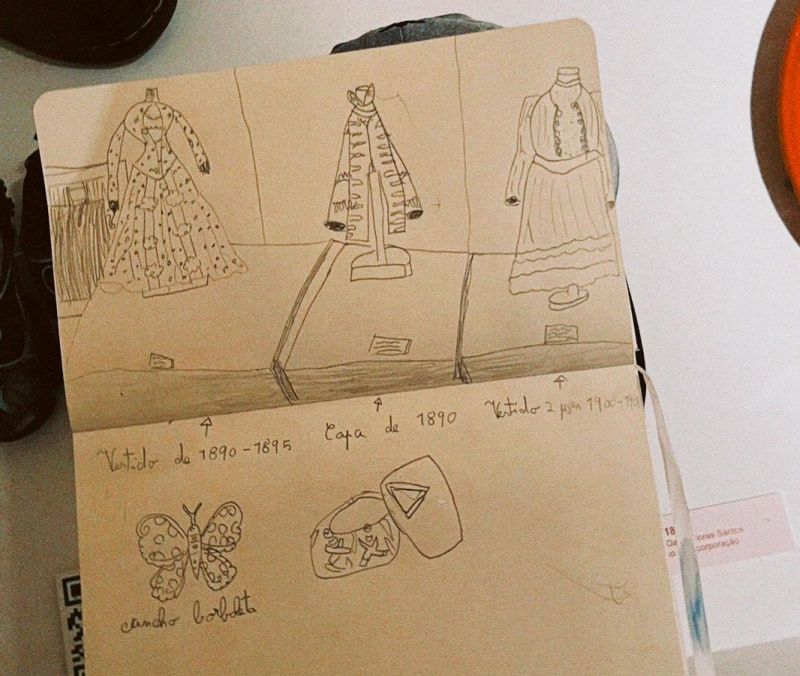 Vestido de 1890-1895
Capa de 1890
Vestido 2 peças 1900-
gancho borboleta
18
Flores Santos
corporação